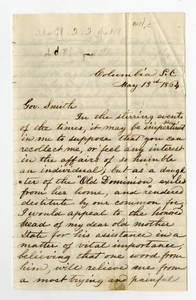 Columbia S.C.
May 13th 1864
Gov. Smith
In the stirring events
of the times, it may be impertinent
in me to suppose that you can
recollect me, or feel any interest
in the affairs of so humble
an individual; but as a daugh
ter of the Old Dominion
from her home and rendered
destitute by our common foe,
I would appeal to the honored
head of my dear old mother
State for his assistance in a
matter of vital importance,
believing that one word from
him, will relieve me from
a most trying and painful